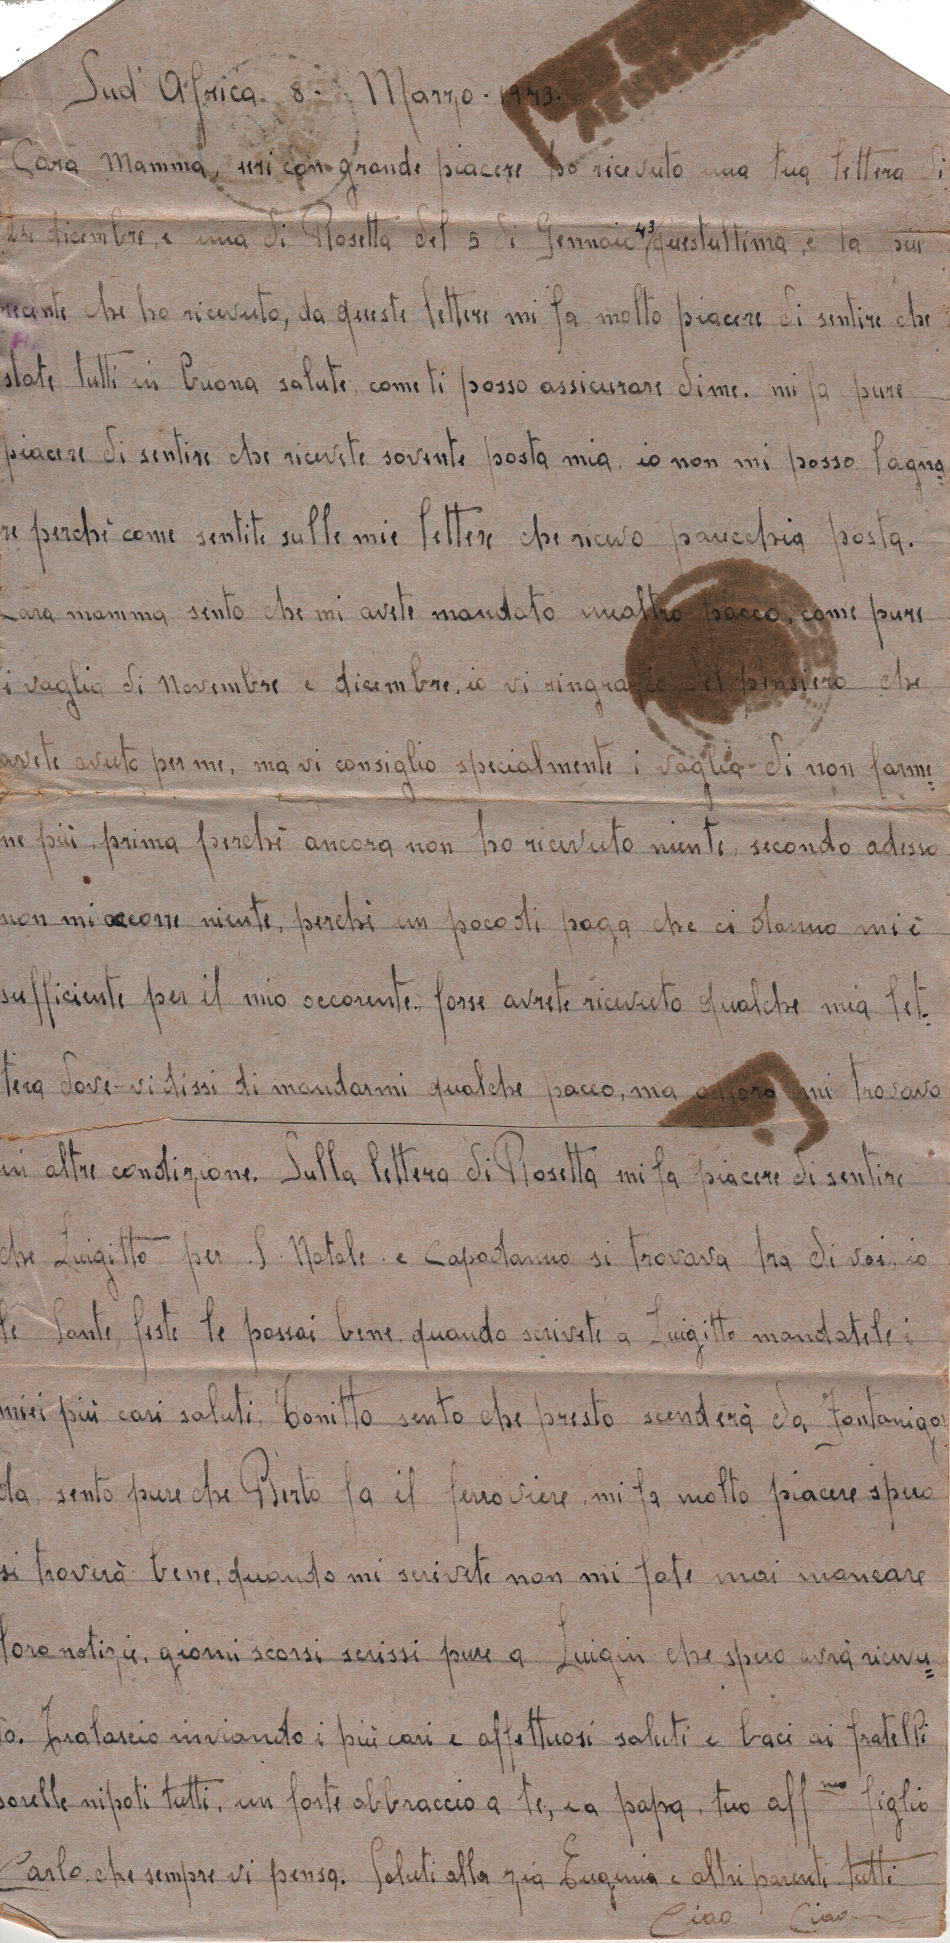 Sud' Africa. 8 - Marzo - 1943.
Cara Mamma, ieri con grande piacere ho ricevuto una tua lettera di
24 dicembre, e una di Rosetta del 5 di Gennaio 43 quest'ultima, è la più
recente che ho ricevuto, da queste lettere mi fa molto piacere di sentire che
state tutti in buona salute, come ti posso assicurare di me. mi fa pure
piacere di sentire che ricevete sovente posta mia, io non mi posso lagna=
re perchè come sentite sulle mie lettere che ricevo parecchia posta.
Cara mamma sento che mi avete mandato unaltro pacco, come pure
i vaglia di Novembre e dicembre, io vi ringrazio del pensiero che
avete avuto per me, ma vi consiglio specialmente i vaglia di non farme=
ne più, prima perchè ancora non ho ricevuto niente, secondo adesso
non mi occorre niente, perchè un poco di paga che ci danno mi è
sufficiente per il mio occorente. forse avrete ricevuto qualche mia let=
tera dove vi dissi di mandarmi qualche pacco, ma allora mi trovavo
in altre condizione. Sulla lettera di Rosetta mi fa piacere di sentire
che Luigitto per S. Natale e Capodanno si trovava tra di voi, io
le Sante feste le passai bene, quando scrivete a Luigitto mandatele i
miei più cari saluti. Tonitto sento che presto scenderà da Fontanigor
da, sento pure che Berto fa il ferroviere, mi fa molto piacere spero
si troverà bene, quando mi scrivete non mi fate mai mancare
loro notizie, giorni scorsi scrissi pure a Luigin che spero avrà ricevu=
to. Tralascio inviando i più cari e affettuosi saluti e baci ai fratelli
sorelle nipoti tutti, un forte abbraccio a te, e a papa, tuo aff mo figlio
Carlo che sempre vi pensa. Saluti alla zia Eugenia e altri parenti tutti
Ciao Ciao